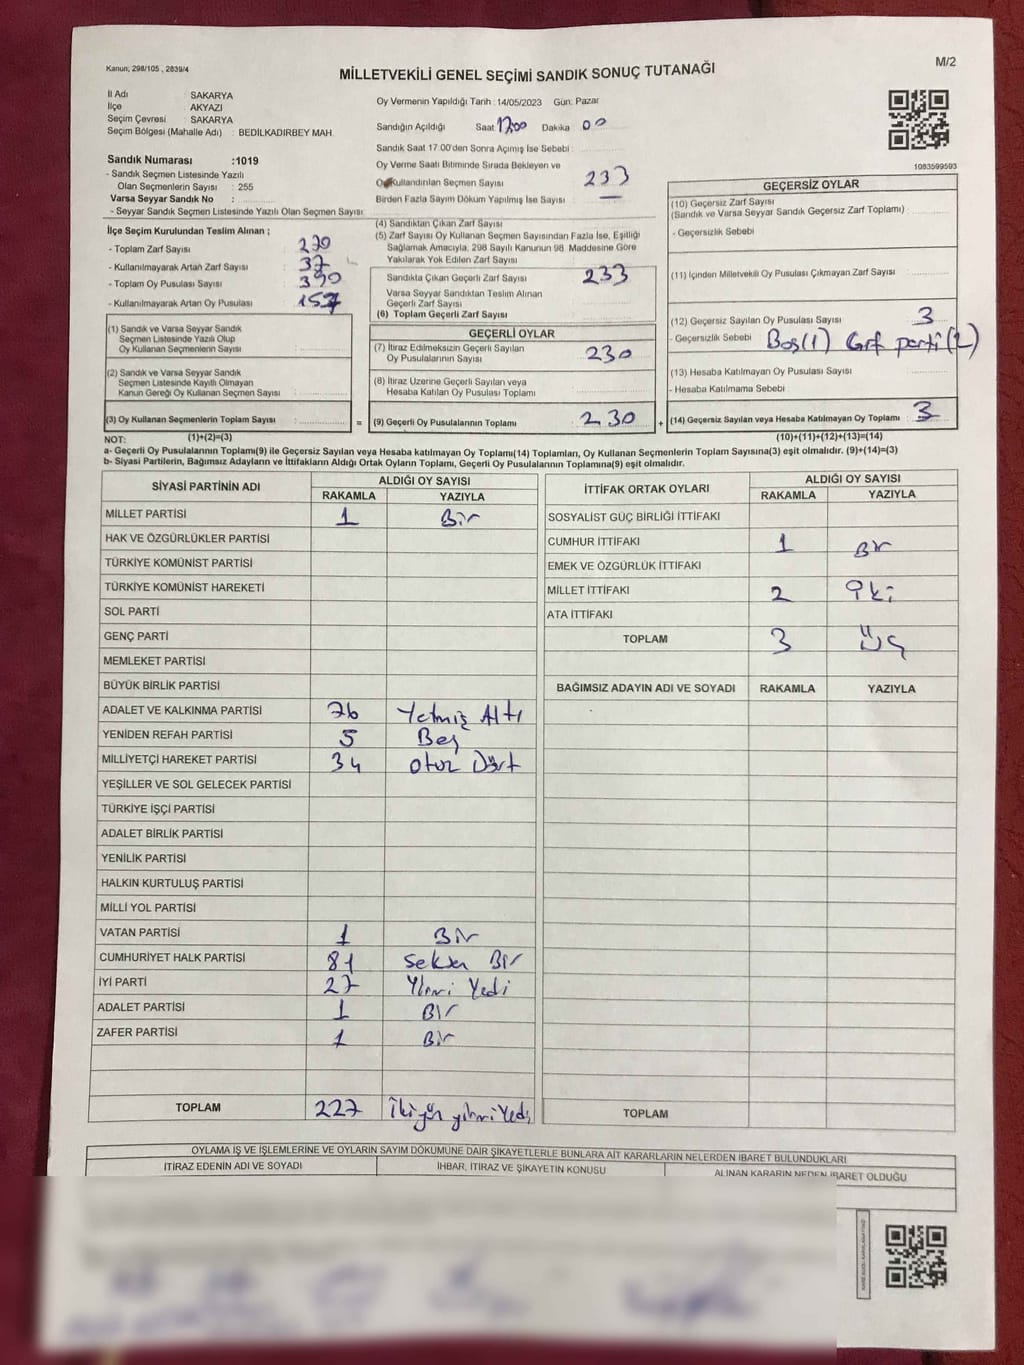 Kanun; 298/105 , 2839/4
MİLLETVEKİLİ GENEL SEÇİMİ SANDIK SONUÇ TUTANAĞI
M/2
İl Adı : SAKARYA
İlçe : AKYAZI
Seçim Çevresi : SAKARYA
Seçim Bölgesi (Mahalle Adı) : BEDİLKADIRBEY MAH.
Sandık Numarası :1019
- Sandık Seçmen Listesinde Yazılı
Olan Seçmenlerin Sayısı : 255
Varsa Seyyar Sandık No :
- Seyyar Sandık Seçmen Listesinde Yazılı Olan Seçmen Sayısı
Oy Vermenin Yapıldığı Tarih : 14/05/2023 Gün: Pazar
Sandığın Açıldığı Saat 17:00 Dakika 00
Sandık Saat 17.00'den Sonra Açımış İse Sebebi :
Oy Verme Saati Bitiminde Sırada Bekleyen ve
Oy Kullandırılan Seçmen Sayısı : 233
Birden Fazla Sayım Döküm Yapılmış İse Sayısı : —
1083599593
İlçe Seçim Kurulundan Teslim Alınan ;
- Toplam Zarf Sayısı : 270
- Kullanılmayarak Artan Zarf Sayısı : 37
- Toplam Oy Pusulası Sayısı : 390
- Kullanılmayarak Artan Oy Pusulası : 157
(1) Sandık ve Varsa Seyyar Sandık
Seçmen Listesinde Yazılı Olup
Oy Kullanan Seçmenlerin Sayısı
(2) Sandık ve Varsa Seyyar Sandık
Seçmen Listesinde Kayıtlı Olmayan
Kanun Gereği Oy Kullanan Seçmen Sayısı
(3) Oy Kullanan Seçmenlerin Toplam Sayısı :
(4) Sandıktan Çıkan Zarf Sayısı
(5) Zarf Sayısı Oy Kullanan Seçmen Sayısından Fazla İse, Eşitliği
Sağlamak Amacıyla, 298 Sayılı Kanunun 98. Maddesine Göre
Yakılarak Yok Edilen Zarf Sayısı
Sandıkta Çıkan Geçerli Zarf Sayısı 233
Varsa Seyyar Sandıktan Teslim Alınan
Geçerli Zarf Sayısı
(6) Toplam Geçerli Zarf Sayısı
GEÇERLİ OYLAR
(7) İtiraz Edilmeksizin Geçerli Sayılan
Oy Pusulalarının Sayısı 230
(8) İtiraz Üzerine Geçerli Sayılan veya
Hesaba Katılan Oy Pusulası Toplamı
= (9) Geçerli Oy Pusulalarının Toplamı : 230 +
GEÇERSİZ OYLAR
(10) Geçersiz Zarf Sayısı
(Sandık ve Varsa Seyyar Sandık Geçersiz Zarf Toplamı)
- Geçersizlik Sebebi
(11) İçinden Milletvekili Oy Pusulası Çıkmayan Zarf Sayısı
(12) Geçersiz Sayılan Oy Pusulası Sayısı : 3
- Geçersizlik Sebebi Boş(1) parti(2)
(13) Hesaba Katılmayan Oy Pusulası Sayısı
- Hesaba Katılmama Sebebi
(14) Geçersiz Sayılan veya Hesaba Katılmayan Oy Toplamı : 3
NOT: (1)+(2)=(3) (10)+(11)+(12)+(13)=(14)
a- Geçerli Oy Pusulalarının Toplamı(9) ile Geçersiz Sayılan veya Hesaba katılmayan Oy Toplamı(14) Toplamları, Oy Kullanan Seçmenlerin Toplam Sayısına(3) eşit olmalıdır. (9)+(14)=(3)
b- Siyasi Partilerin, Bağımsız Adayların ve İttifakların Aldığı Ortak Oyların Toplamı, Geçerli Oy Pusulalarının Toplamına(9) eşit olmalıdır.
SİYASİ PARTİNİN ADI ALDIĞI OY SAYISI
RAKAMLA YAZIYLA
MİLLET PARTİSİ 1 Bir
HAK VE ÖZGÜRLÜKLER PARTİSİ
TÜRKİYE KOMÜNİST PARTİSİ
TÜRKİYE KOMÜNİST HAREKETİ
SOL PARTİ
GENÇ PARTİ
MEMLEKET PARTİSİ
BÜYÜK BİRLİK PARTİSİ
ADALET VE KALKINMA PARTİSİ 76 Yetmiş Altı
YENİDEN REFAH PARTİSİ 5 Beş
MİLLİYETÇİ HAREKET PARTİSİ 34 Otuz Dört
YEŞİLLER VE SOL GELECEK PARTİSİ
TÜRKİYE İŞÇİ PARTİSİ
ADALET BİRLİK PARTİSİ
YENİLİK PARTİSİ
HALKIN KURTULUŞ PARTİSİ
MİLLİ YOL PARTİSİ
VATAN PARTİSİ 1 Bir
CUMHURİYET HALK PARTİSİ 81 Seksen Bir
İYİ PARTİ 27 Yirmi Yedi
ADALET PARTİSİ 1 Bir
ZAFER PARTİSİ 1 Bir
TOPLAM 227 İki yüz yirmi Yedi
İTTİFAK ORTAK OYLARI ALDIĞI OY SAYISI
RAKAMLA YAZIYLA
SOSYALİST GÜÇ BİRLİĞİ İTTİFAKI
CUMHUR İTTİFAKI 1 Bir
EMEK VE ÖZGÜRLÜK İTTİFAKI
MİLLET İTTİFAKI 2 İki
ATA İTTİFAKI
TOPLAM 3 Üç
BAĞIMSIZ ADAYIN ADI VE SOYADI RAKAMLA YAZIYLA
TOPLAM
OYLAMA İŞ VE İŞLEMLERİNE VE OYLARIN SAYIM DÖKÜMÜNE DAİR ŞİKAYETLERLE BUNLARA AİT KARARLARIN NELERDEN İBARET BULUNDUKLARI
İTİRAZ EDENİN ADI VE SOYADI İHBAR, İTİRAZ VE ŞİKAYETİN KONUSU ALINAN KARARIN NEDEN İBARET OLDUĞU